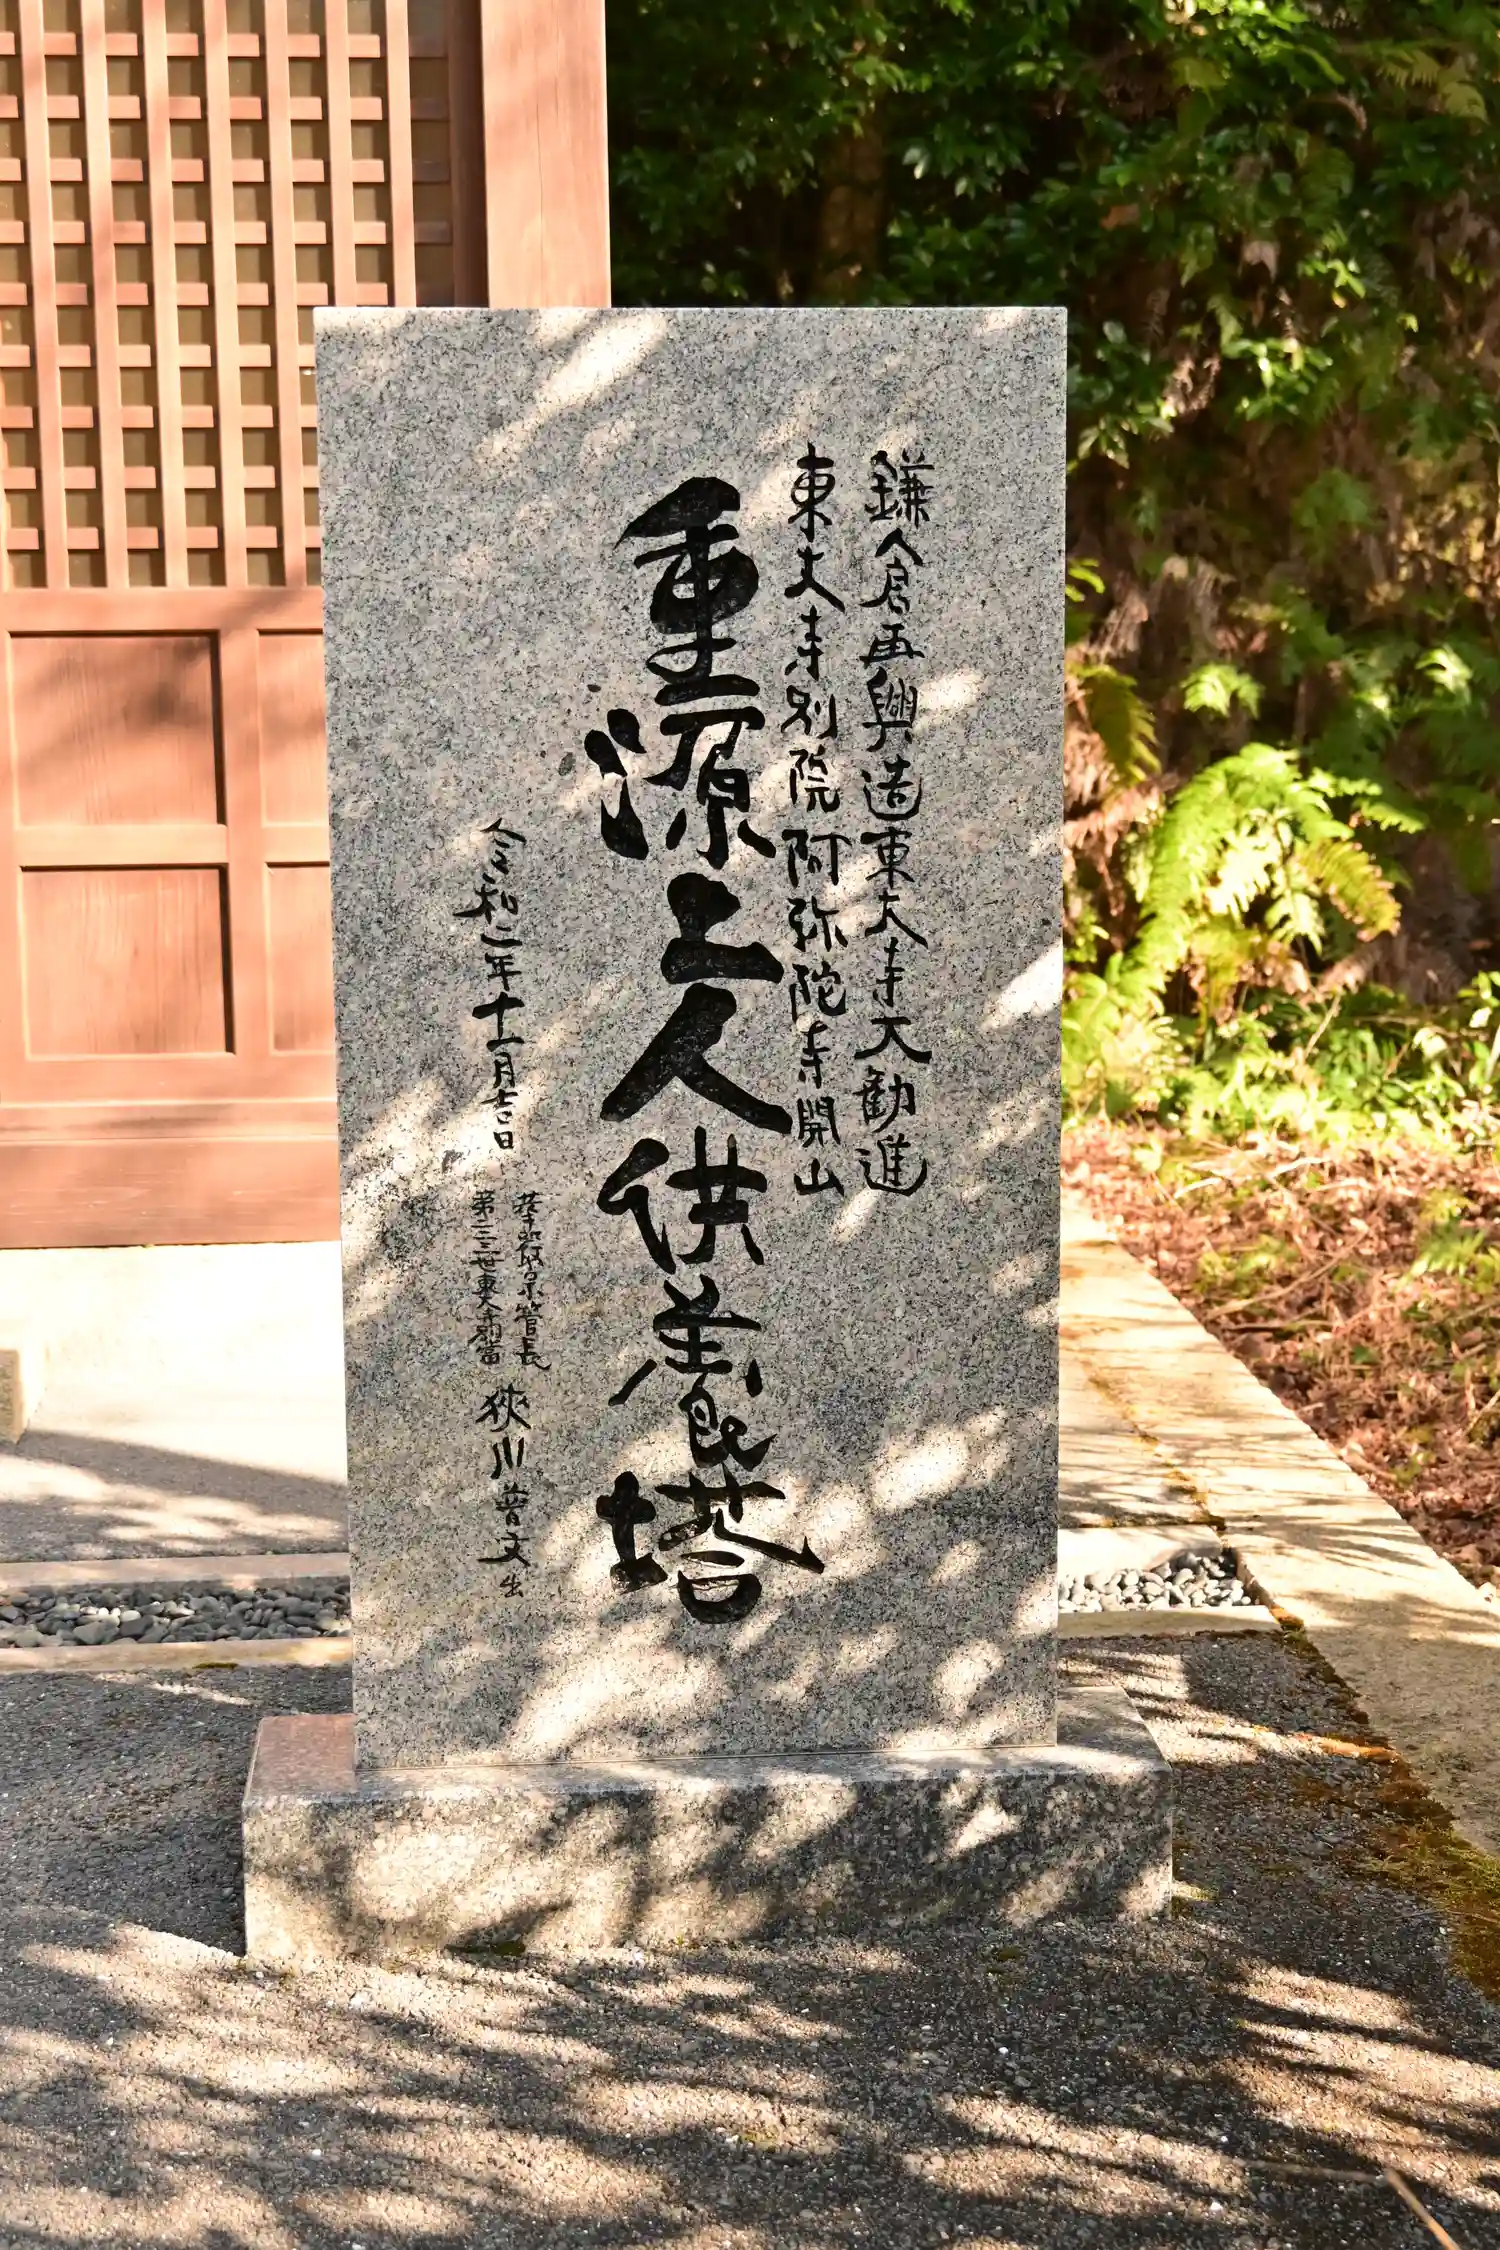 鎌倉再興造東大寺大勧進
東大寺別院阿弥陀寺開山
重源上人供養塔
令和二年十一月吉日
華厳宗管長
第二二三世東大寺別當
狹川普文 出